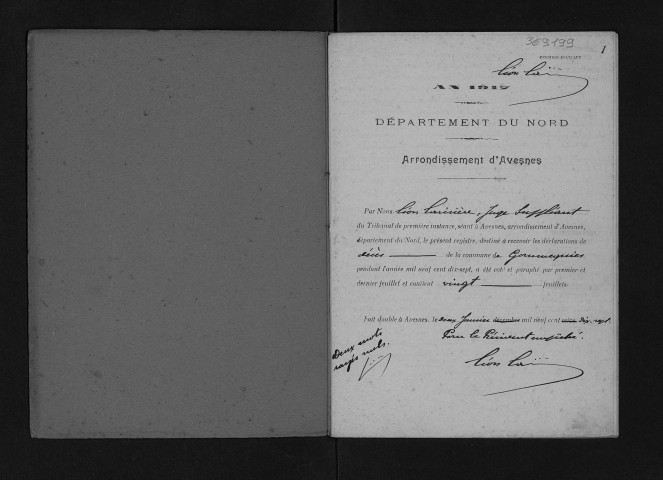 369199
1
PREMIER FEUILLET
Léon Lar
AN 1917
DÉPARTEMENT DU NORD
Arrondissement d'Avesnes
Par Nous, Léon Larivière, Juge Suppléant
du Tribunal de première instance, séant à Avesnes, arrondissement d'Avesnes,
département du Nord, le présent registre, destiné à recevoir les déclarations de
décès de la commune de Gommegnies
pendant l'année mil neuf cent dix-sept, a été coté et paraphé par premier et
dernier feuillet et contient vingt feuillets.
Fait double à Avesnes, le deux Janvier décembre mil neuf cent seize dix sept.
Pour le Président empêché.
Deux mots
rayés nuls.
Léon Lar